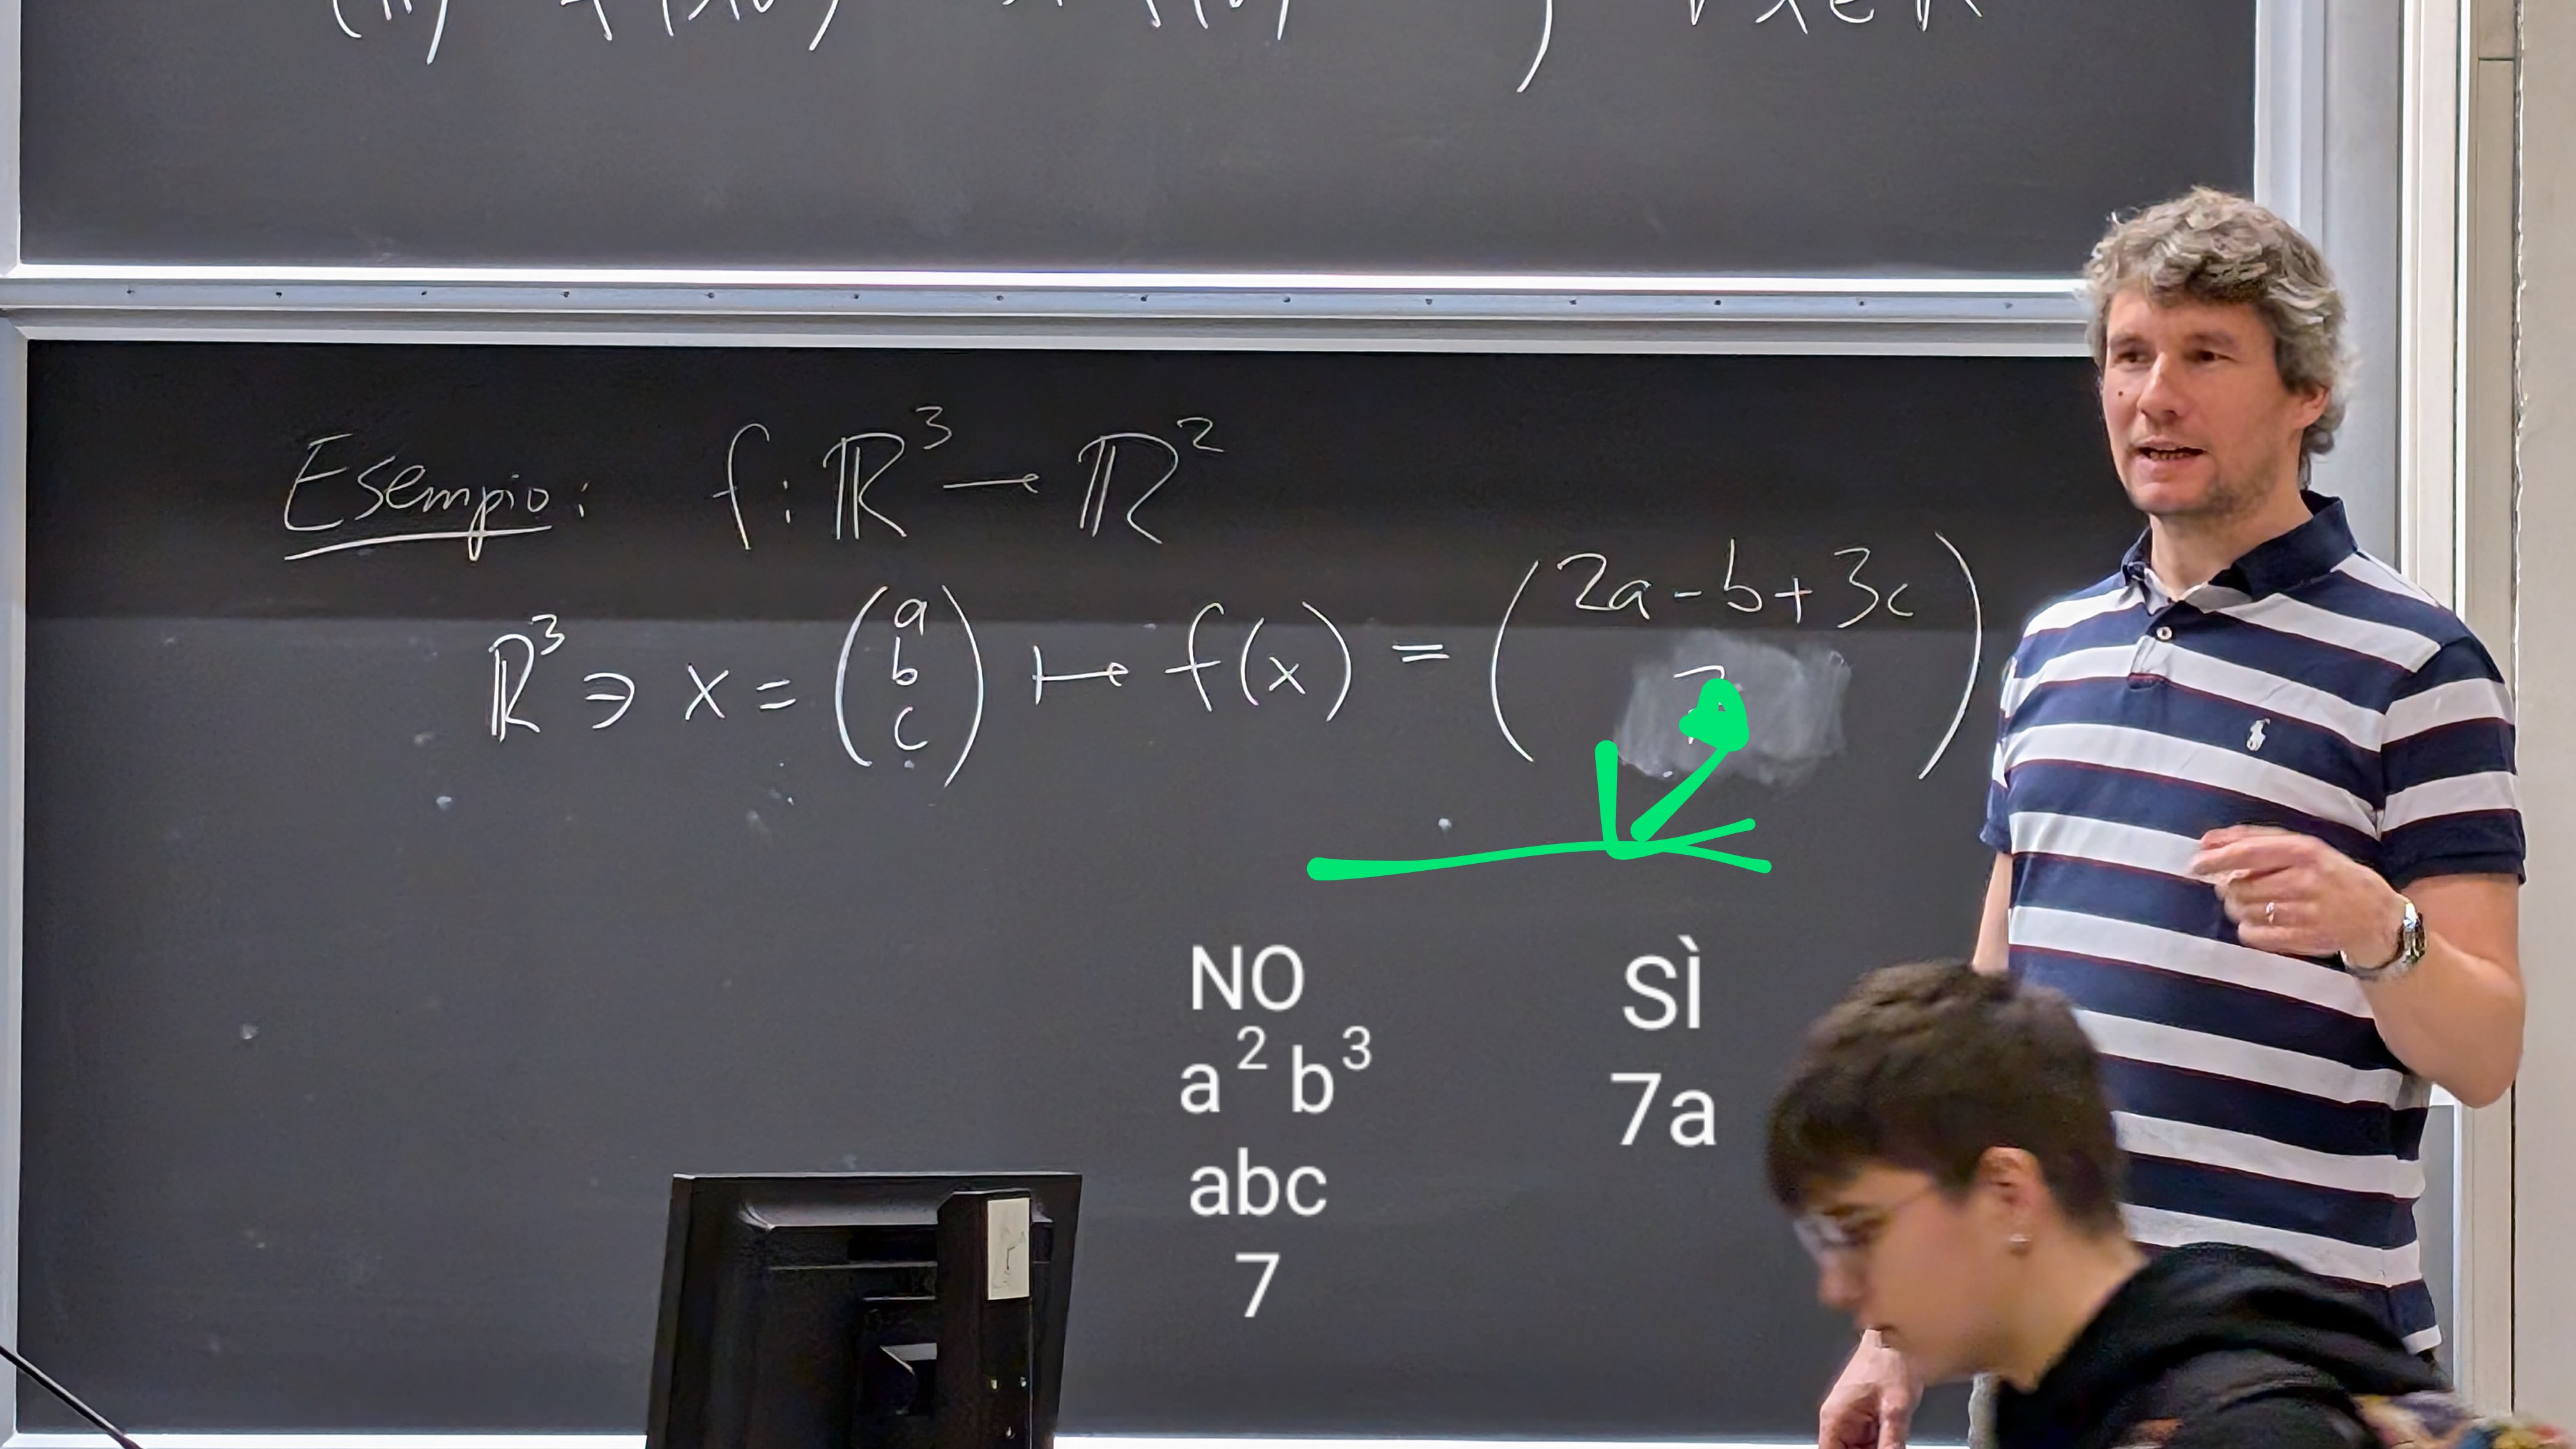 ∀ x ∈ ℝ
Esempio: f: ℝ³ → ℝ²
ℝ³ ∋ x = (a b c) ↦ f(x) = (2a - b + 3c
7
NO
a² b³
abc
7
SÌ
7a